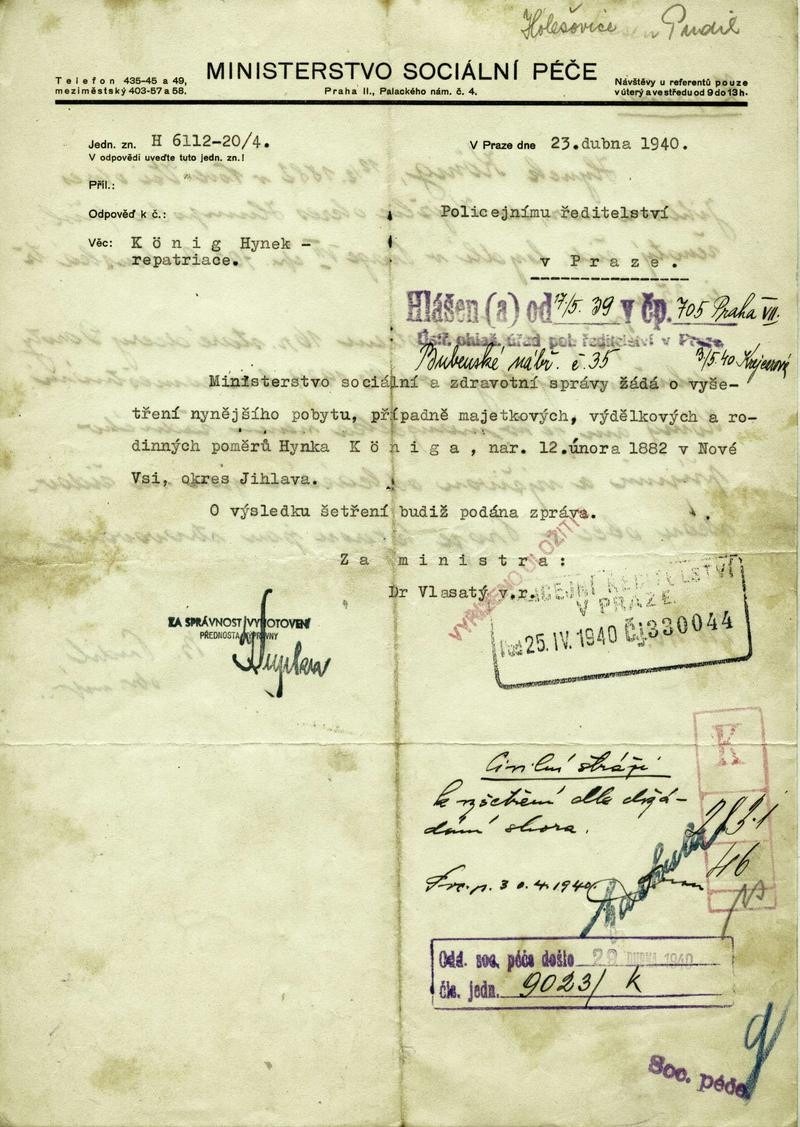 Holešovice Pudil
Telefon 435-45 a 49,
meziměstský 403-57 a 58.
MINISTERSTVO SOCIÁLNÍ PÉČE
Praha II., Palackého nám. č. 4.
Návštěvy u referentů pouze
v úterý a ve středu od 9 do 13 h.
Jedn. zn. H 6112-20/4.
V odpovědi uveďte tuto jedn. zn.!
V Praze dne 23.dubna 1940.
Příl.:
Odpověď k č.:
Policejnímu ředitelství
Věc: K ö n i g Hynek -
repatriace.
v P r a z e .
Hlášen (a) od 7/5. 39 v čp. 705 Praha VII.
Ústř. ohlaš. úřad pol. ředitelství v Praze.
Bubenské nábř. č. 35
3/5.40
Ministerstvo sociální a zdravotní správy žádá o vyše-
tření nynějšího pobytu, případně majetkových, výdělkových a ro-
dinných poměrů Hynka K ö n i g a , nar. 12.února 1882 v Nové
Vsi, okres Jihlava.
O výsledku šetření budiž podána zpráva.
Z a m i n i s t r a :
Dr Vlasatý v.r.
VYŘÍZENO ULOŽITI
POLICEJNÍ ŘEDITELSTVÍ
V PRAZE
25. IV. 1940 Čj 330044
ZA SPRÁVNOST VYHOTOVENÍ
PŘEDNOSTA VÝPRAVNY
K
Civilní stráži
k vyšetření dle dožá-
dání shora.
283.1
46
30.4.1940
Odd. soc. péče došlo 29 DUBNA 1940
čís. jedn. 9023/ K
Soc. péče